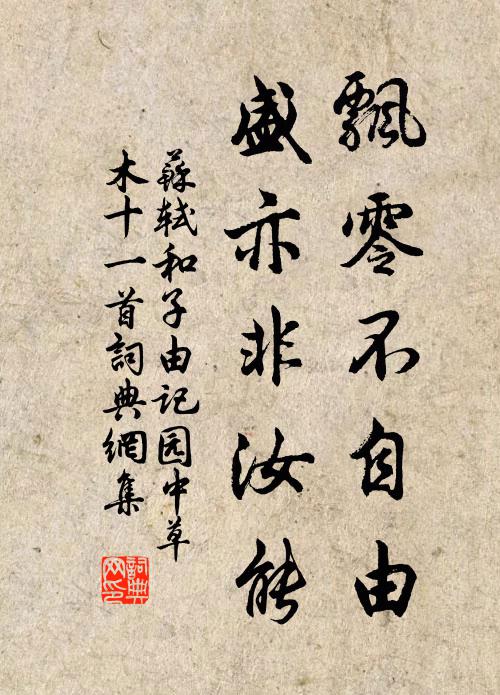 飄零不自由
盛亦非汝能
蘇軾和子由记园中草
木十一首詞典網集
詞典
网印